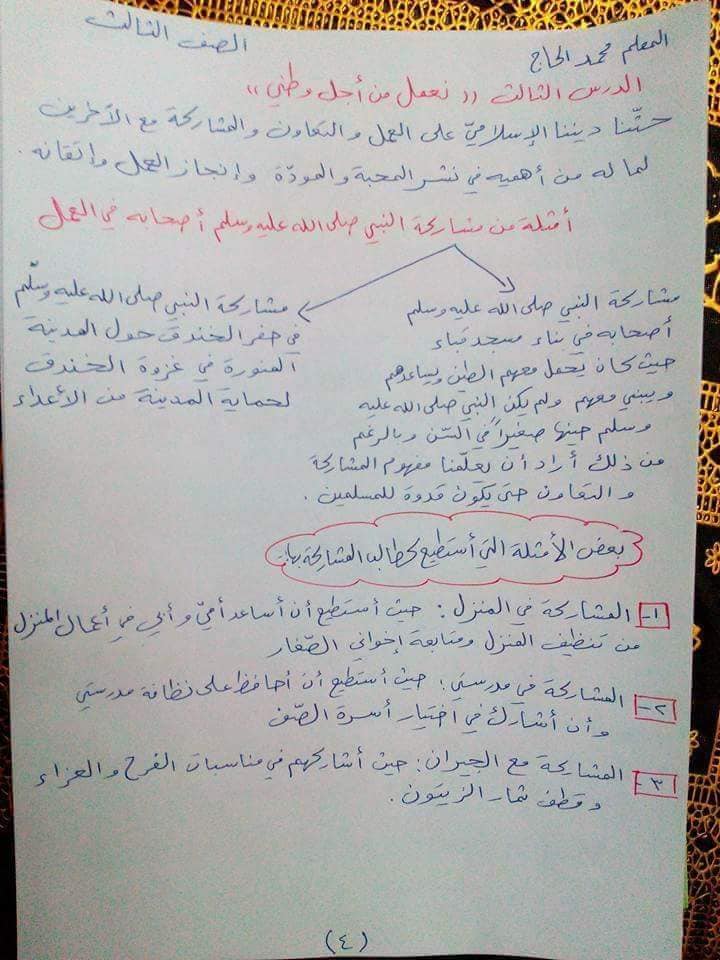 المعلم محمد الحاج
الصف الثالث
الدرس الثالث (( نعمل من أجل وطني ))
حثّنا ديننا الإسلاميّ على العمل والتعاون والمشاركة مع الآخرين
لما له من أهميه في نشر المحبة والمودّة وإنجاز العمل وإتقانه .
أمثلة من مشاركة النبي صلى الله عليه وسلم أصحابه في العمل
مشاركة النبي صلى الله عليه وسلم
أصحابه في بناء مسجد قباء
حيث كان يحمل معهم الطين ويساعدهم
ويبني معهم ولم يكن النبي صلى الله عليه
وسلم حينها صغيراً في السّن وبالرغم
من ذلك أراد أن يعلّمنا مفهوم المشاركة
والتعاون حتى يكون قدوة للمسلمين .
مشاركة النبي صلى الله عليه وسلّم
في حفر الخندق حول المدينة
المنورة في غزوة الخندق
لحماية المدينة من الأعداء
بعض الأمثلة التي أستطيع كطالب المشاركة بها:
١- المشاركة في المنزل : حيث أستطيع أن أساعد أميّ وأبي في أعمال المنزل
من تنظيف المنزل ومتابعة إخواني الصّغار
٢- المشاركة في مدرستي : حيث أستطيع أن أحافظ على نظافة مدرستي
وأن أشارك في اختيار أسرة الصّف
٣- المشاركة مع الجيران : حيث أشاركهم في مناسبات الفرح والعزاء
وقطف ثمار الزيتون .
(٤)